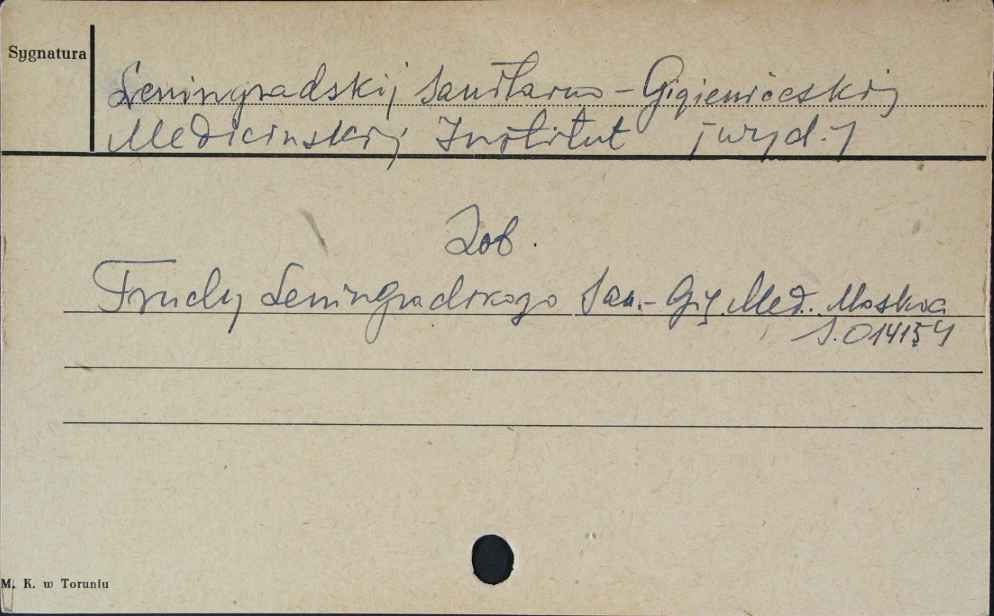 Sygnatura
Leningradskij Sanitarno-Gigieničeskij
Medicinskij Institut [wyd.]
Zob.
Trudy Leningradskogo San.-Gig. Med. Moskva
S.014154
M. K. w Toruniu